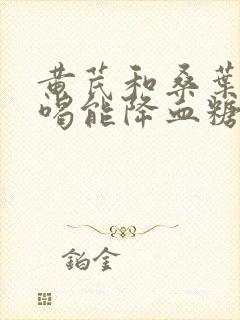 黄芪和桑葉
喝能降血糖
鉑金